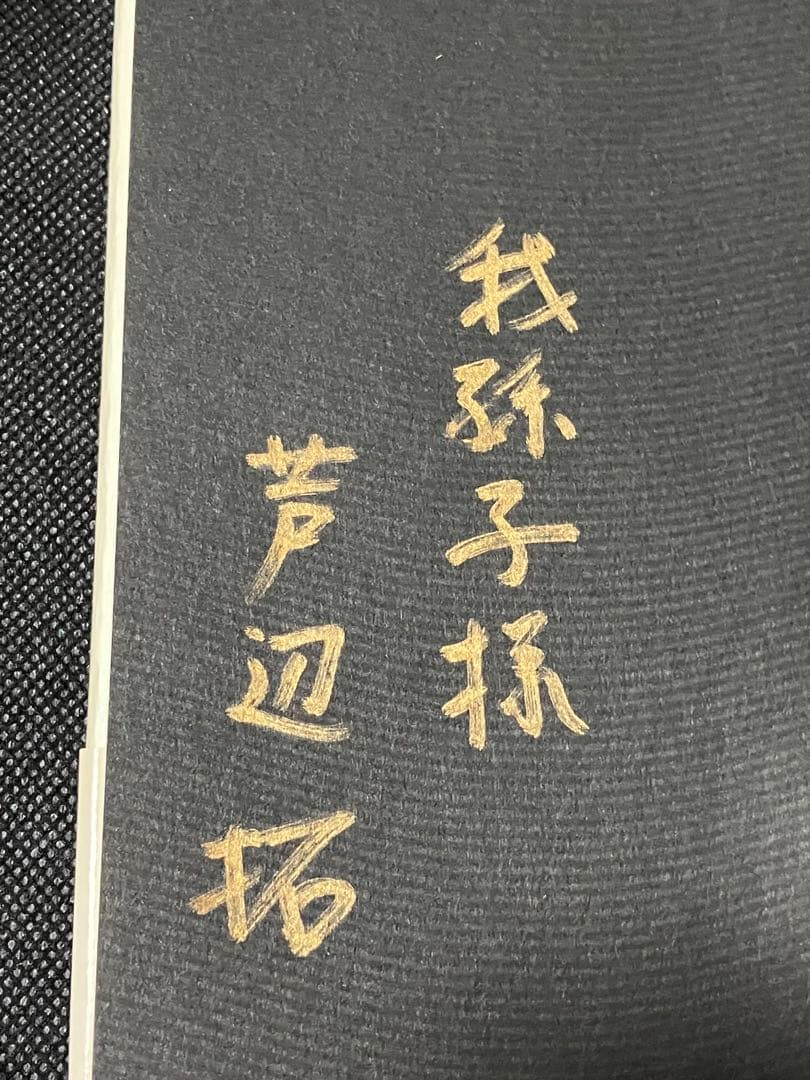 我孫子様
芦辺拓